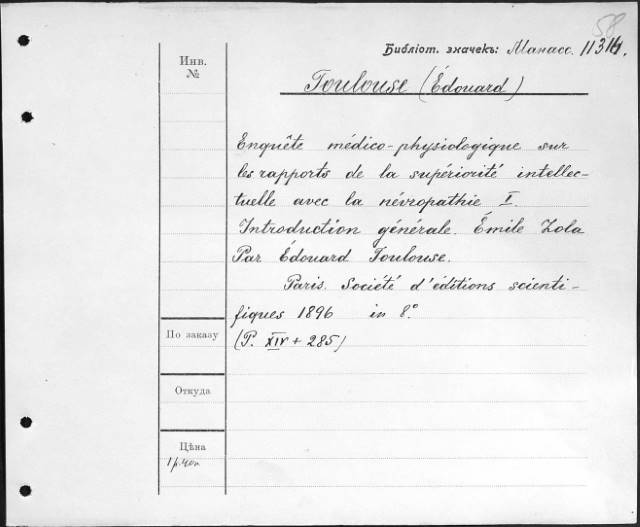 58
Библіот. значекъ: Манасс.
Инв.
№
Toulouse (Édouard)
Enquête médico-physiologique sur
les rapports de la supériorité intellec-
tuelle avec la névropathie I.
Introduction générale. Émile Zola
Par Édouard Toulouse.
Paris. Société d'éditions scienti-
fiques 1896 in 8°
(P. XIV + 285)
По заказу
Откуда
Цѣна